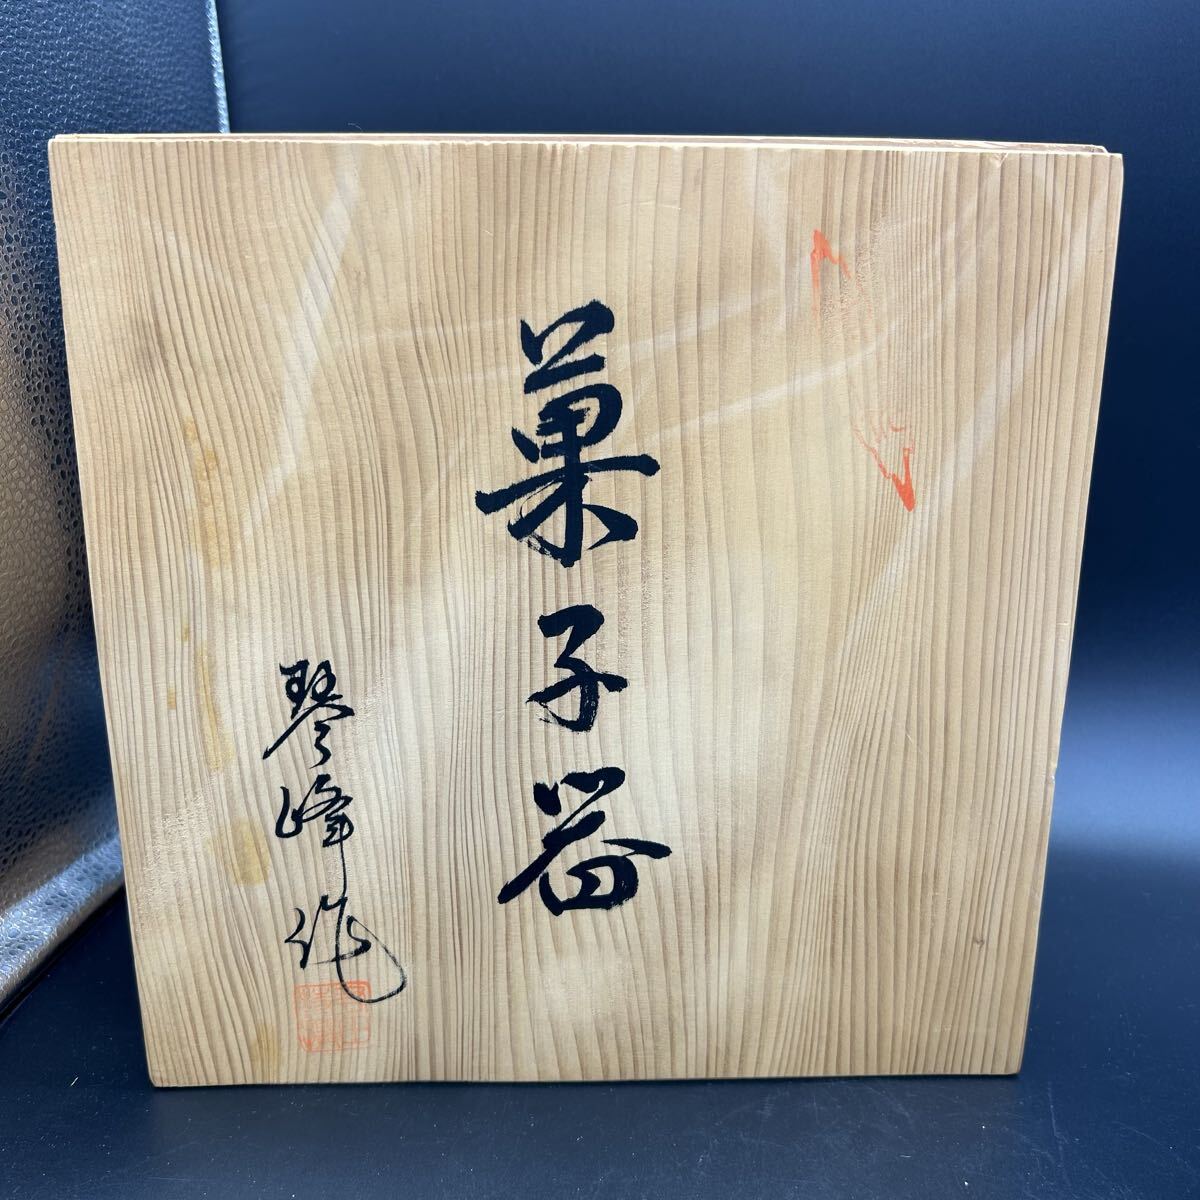 菓子器
琴峰作